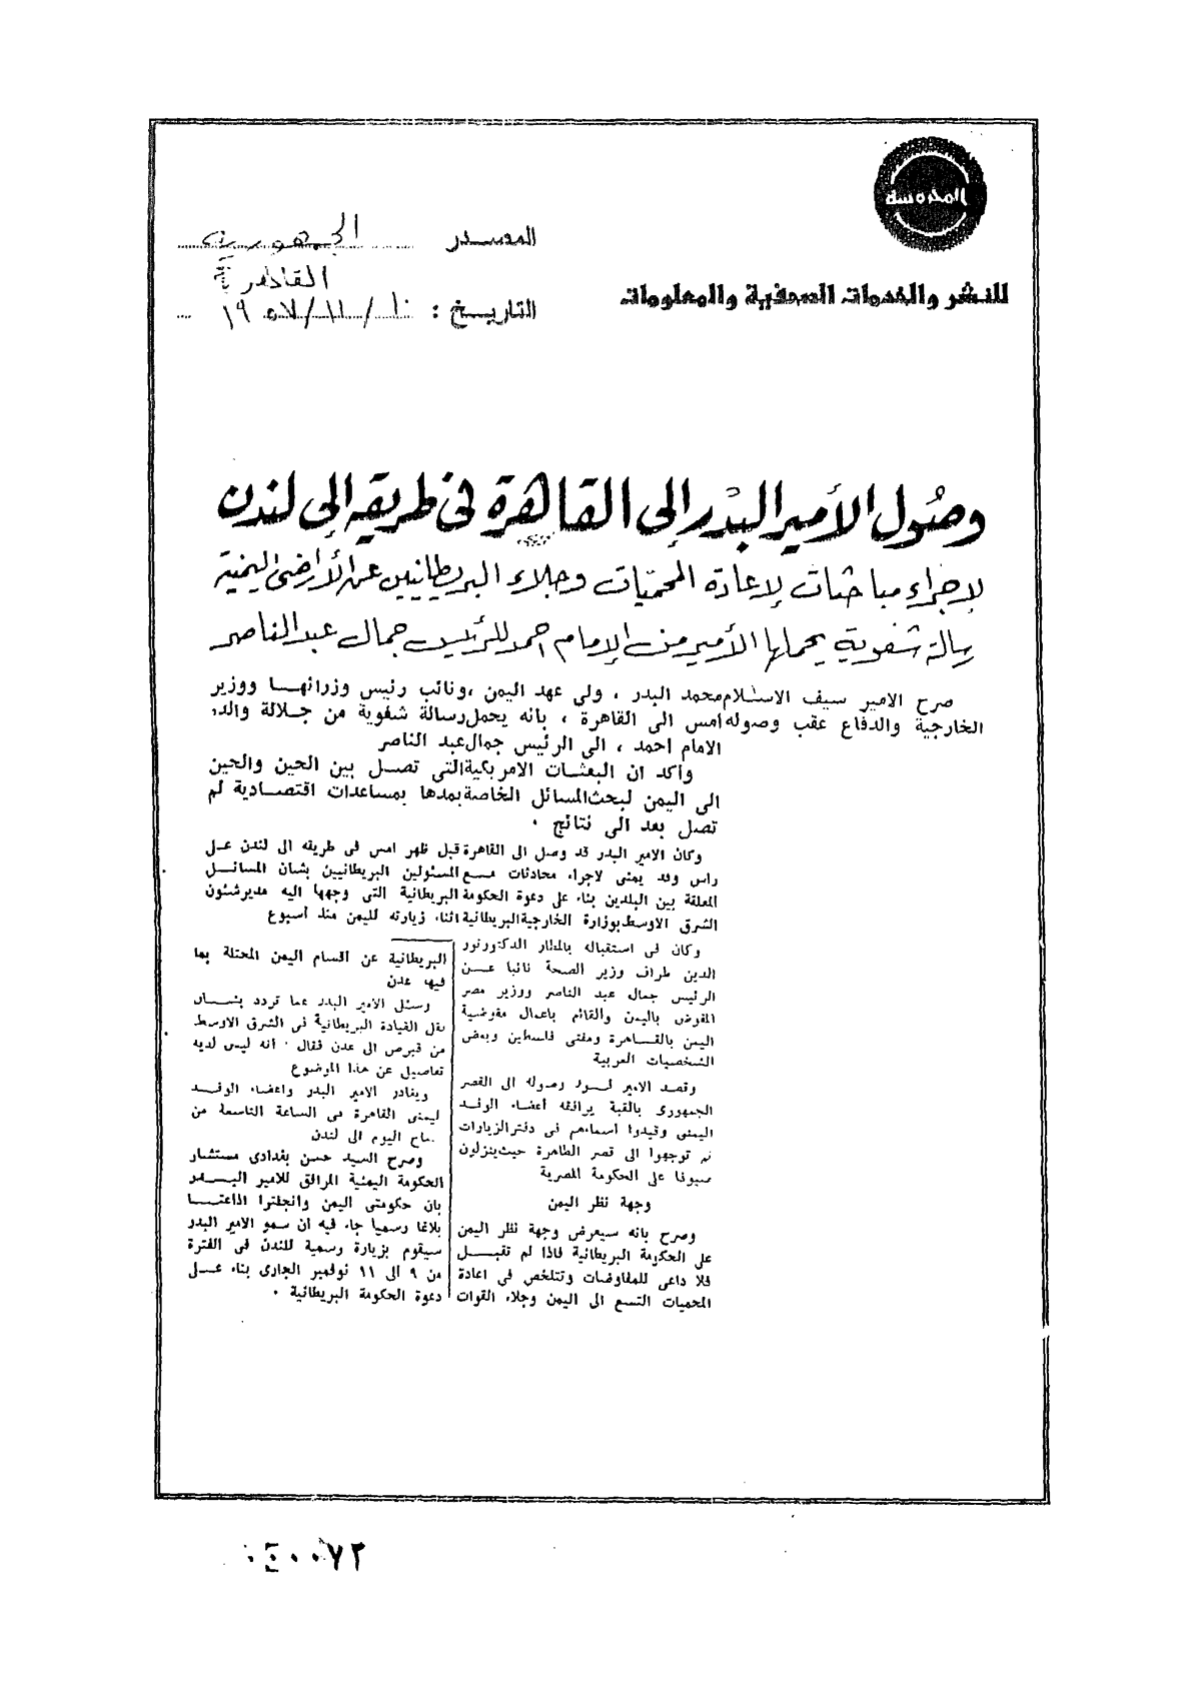 المحروسة
للنشر والخدمات الصحفية والمعلومات
المصدر الجمهورية
القاهرية
التاريخ : ١٠/١١/١٩٥٧
وصول الأمير البدر إلى القاهرة فى طريقه إلى لندن
لإجراء مباحثات لإعادة المحميات وجلاء البريطانيين عن الأراضى اليمنية
رسالة شفوية يحملها الأمير من الإمام احمد للرئيس جمال عبد الناصر
صرح الامير سيف الاسلام محمد البدر ، ولى عهد اليمن ،ونائب رئيس وزرائهـا ووزير
الخارجية والدفاع عقب وصوله امس الى القاهرة ، بانه يحمل رسالة شفوية من جلالة والده
الامام احمد ، الى الرئيس جمال عبد الناصر
وأكد ان البعثات الامريكية التى تصل بين الحين والحين
الى اليمن لبحث المسائل الخاصة بمدها بمساعدات اقتصادية لم
تصل بعد الى نتائج .
وكان الامير البدر قد وصل الى القاهرة قبل ظهر امس فى طريقه الى لندن على
رأس وفد يمنى لاجراء محادثات مع المسئولين البريطانيين بشأن المسائل
المعلقة بين البلدين بناء على دعوة الحكومة البريطانية التى وجهها اليه مدير شئون
الشرق الاوسط بوزارة الخارجية البريطانية اثناء زيارته لليمن منذ أسبوع
وكان فى استقباله بالمطار الدكتور نور
الدين طراف وزير الصحة نائبا عن
الرئيس جمال عبد الناصر ووزير مصر
المفوض باليمن والقائم باعمال مفوضية
اليمن بالقاهرة ومفتى فلسطين وبعض
الشخصيات العربية
وقصد الامير فور وصوله الى القصر
الجمهورى بالقبة يرافقه أعضاء الوفد
اليمنى وقيدوا أسماءهم فى دفتر الزيارات
ثم توجهوا الى قصر الطاهرة حيث ينزلون
ضيوفا على الحكومة المصرية
وجهة نظر اليمن
وصرح بانه سيعرض وجهة نظر اليمن
على الحكومة البريطانية فاذا لم تقبل
فلا داعى للمفاوضات وتتلخص فى اعادة
المحميات التسع الى اليمن وجلاء القوات
البريطانية عن اقسام اليمن المحتلة بما
فيها عدن
وسئل الامير البدر عما تردد بشأن
نقل القيادة البريطانية فى الشرق الاوسط
من قبرص الى عدن فقال : انه ليس لديه
تفاصيل عن هذا الموضوع
ويغادر الامير البدر واعضاء الوفد
اليمنى القاهرة فى الساعة التاسعة من
صباح اليوم الى لندن
وصرح السيد حسن بغدادى مستشار
الحكومة اليمنية المرافق للامير البدر
بان حكومتى اليمن وانجلترا اذاعتا
بلاغا رسميا جاء فيه ان سمو الامير البدر
سيقوم بزيارة رسمية للندن فى الفترة
من ٩ الى ١١ نوفمبر الجارى بناء على
دعوة الحكومة البريطانية .
٠٤٠٠٧٢